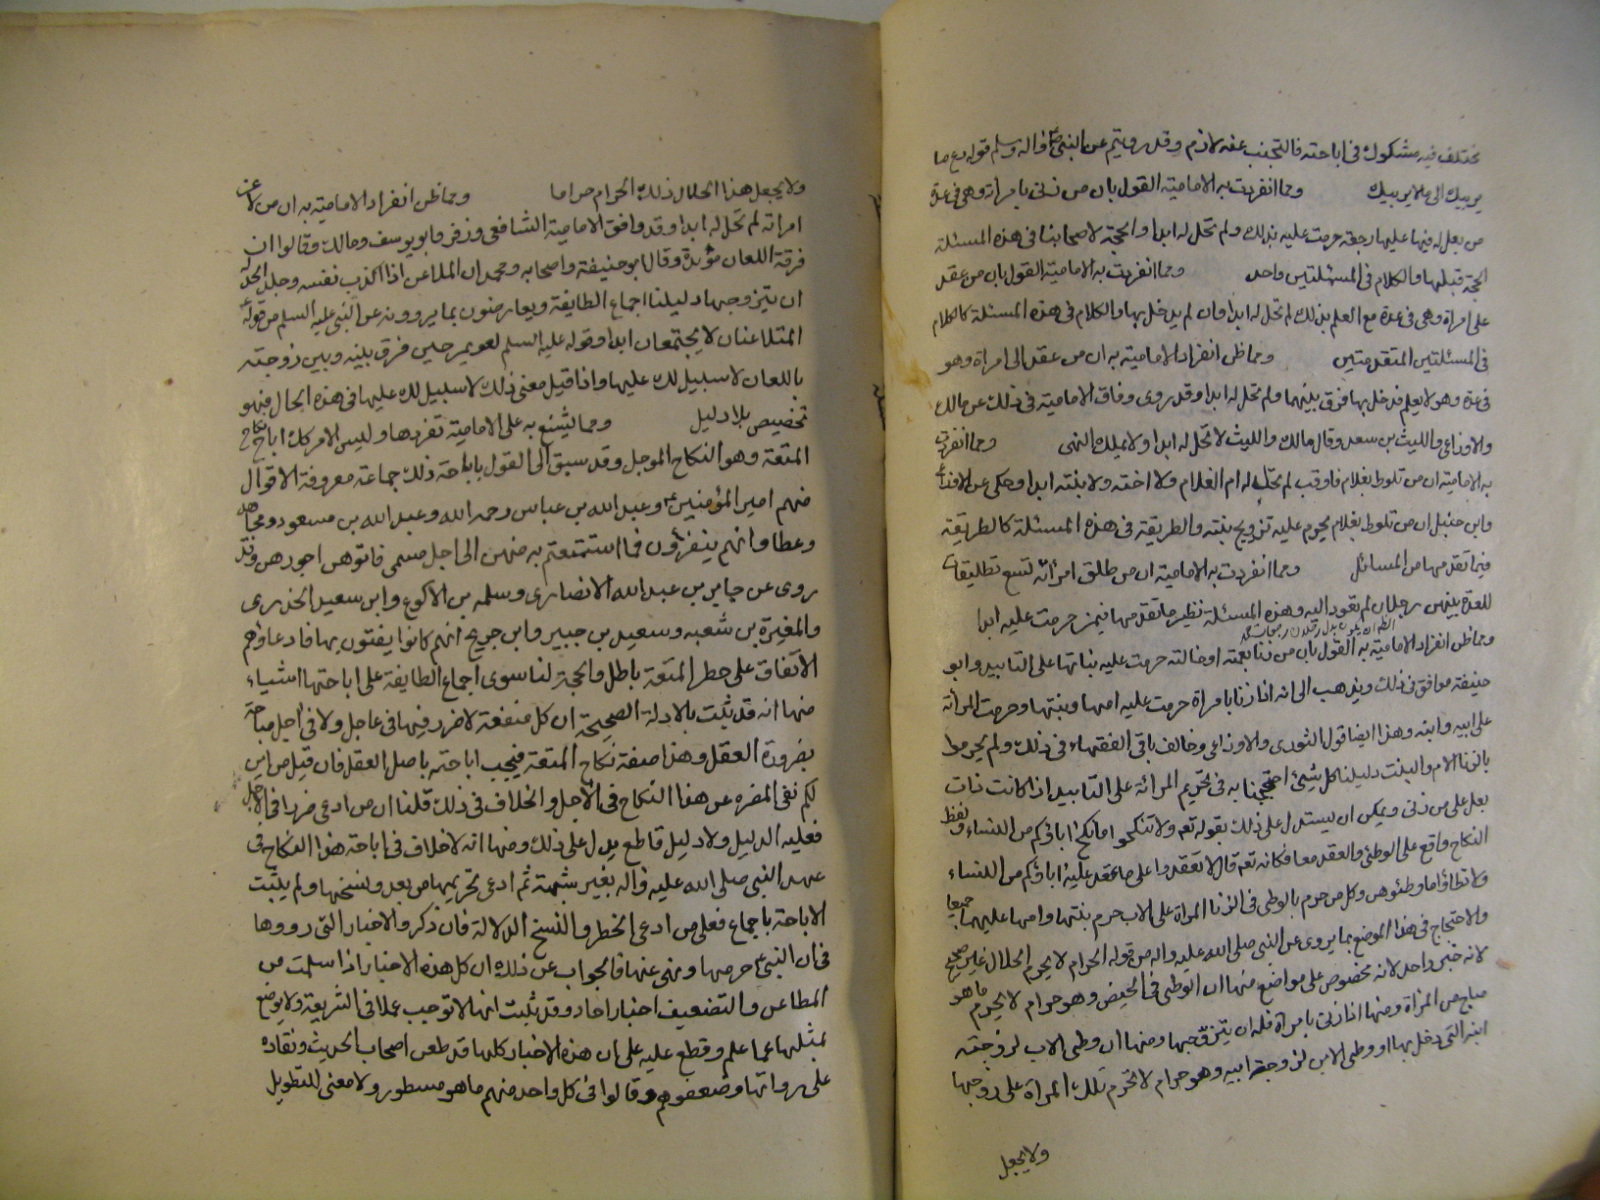 مختلف فيه مشكوك في اباحته فالتجنب عنه لازم وقد رويتم عن النبي ص واله وسلم قوله دع ما
يريبك الى ما لا يريبك ومما انفردت به الامامية القول بان من زنى بامراة وهي في عدة
من بعل له فيها عليها رجعة حرمت عليه بذلك ولم تحل له ابدا والحجة لاصحابنا في هذه المسئلة
الحجة قبلها والكلام في المسئلتين واحد ومما انفردت به الامامية القول بان من عقد
على امراة وهي في عدة مع العلم بذلك لم تحل له ابدا وان لم يدخل بها والكلام في هذه المسئلة كالكلام
في المسئلتين المتقدمتين ومما ظن انفراد الامامية به ان من عقد الى امراة وهو
في عدة وهو لا يعلم فدخل بها فرق بينهما ولم تحل له ابدا وقد روى وفاق الامامية في ذلك عن مالك
والاوزاعي والليث بن سعد وقال مالك والليث لا تحل له ابدا ولا بملك اليمين ومما انفردت
به الامامية ان من تلوط بغلام فاوقب لم تحل له ام الغلام ولا اخته ولا بنته ابدا وحكى عن الاوزاعي
وابن حنبل ان من تلوط بغلام يحرم عليه تزويج بنته والطريقة في هذه المسئلة كالطريقة
فيما تقدمها من المسائل ومما انفردت به الامامية ان من طلق امراته تسع تطليقات
للعدة بينهن رجلان لم تعود اليه وهذه المسئلة نظير ما تقدمها فيمن حرمت عليه ابدا
ومما ظن انفراد الامامية به القول بان من زنا بعمته او خالته حرمت عليه بناتها على التابيد وابو
حنيفة موافق في ذلك ويذهب الى انه اذا زنا بامراة حرمت عليه امها وبنتها وحرمت المراة
على ابيه وابنه وهذا ايضا قول الثوري والاوزاعي وخالف باقي الفقهاء في ذلك ولم يحرموا
بالزنا الام والبنت دليلنا كل شيئ احتججنا به في تحريم المرائة على التابيد اذا كانت ذات
بعل على من زنى ويمكن ان يستدل على ذلك بقوله تع ولا تنكحوا ما نكح اباؤكم من النساء ولفظ
النكاح واقع على الوطئ والعقد معا فكانه تع قال لا تعقدوا على ما عقد عليه اباؤكم من النساء
ولا تطاؤا ما وطئوهن وكل من حرم بالوطي في الزنا المراة على الاب حرم بنتها وامها عليهما جميعا
والاحتجاج في هذا الموضع بما يروى عن النبي صلى الله عليه واله من قوله الحرام لا يحرم الحلال غير صحيح
لانه خبر واحد لانه مخصوص على مواضع منها ان الوطي في الحيض وهو حرام لا يحرم ما هو
مباح من المراة ومنها اذا زنى بامراة فله ان يتزوجها ومنها ان وطى الاب لزوجته
ابنه التي دخل بها او وطى الابن لزوجة ابيه وهو حرام لا تحرم تلك المراة على زوجها
ولا يجعل
ولا يجعل هذا الحلال ذلك الحرام حراما ومما ظن انفراد الامامية به ان من لاعن
امراته لم تحل له ابدا وقد وافق الامامية الشافعي وزفر وابو يوسف ومالك وقالوا ان
فرقة اللعان مؤبدة وقال ابو حنيفة واصحابه ومحمد ان الملاعن اذا اكذب نفسه وجلد الحد له
ان يتزوجها دليلنا اجماع الطايفة ويعارضون بما يروونه عن النبي عليه السلم من قوله
المتلاعنان لا يجتمعان ابدا وقوله عليه السلم لعويمر حين فرق بينه وبين زوجته
باللعان لا سبيل لك عليها واذا قيل معنى ذلك لا سبيل لك عليها في هذه الحال فهو
تخصيص بلا دليل ومما يشنع به على الامامية تفردها وليس الامر كك اباحة نكاح
المتعة وهو النكاح الموجل وقد سبق الى القول باباحة ذلك جماعة معروفة الاقوال
منهم امير المؤمنين ع وعبد الله بن عباس رحمه الله وعبد الله بن مسعود ومجاهد
وعطا وانهم يقرؤن فما استمتعتم به منهن الى اجل مسمى فاتوهن اجورهن وقد
روى عن جابر بن عبد الله الانصاري وسلمه بن الاكوع وابن سعيد الخدري
والمغيرة بن شعبه وسعيد بن جبير وابن جريح انهم كانوا يفتون بها فادعاؤهم
الاتفاق على حظر المتعة باطل والحجة لنا سوى اجماع الطايفة على اباحتها اشياء
منها انه قد ثبت بالادلة الصحيحة ان كل منفعة لا ضرر فيها في عاجل ولا في اجل مباحة
بضرورة العقل وهذا صفة نكاح المتعة فيجب اباحته باصل العقل فان قيل من اين
لكم نفي المضره عن هذا النكاح في الاجل والخلاف في ذلك قلنا ان من ادعى ضررا في الاجل
فعليه الدليل ولا دليل قاطع يدل على ذلك ومنها انه لا خلاف في اباحة هذا النكاح في
عهد النبي صلى الله عليه واله بغير شبهة ثم ادعى تحريمها من بعد ونسخها ولم يثبت
الاباحة باجماع فعلى من ادعى الحظر والنسخ الدلالة فان ذكروا الاخبار التي رووها
في ان النبي ع حرمها ونهى عنها فالجواب عن ذلك ان كل هذه الاخبار اذا سلمت من
المطاعن والتضعيف اخبار احاد وقد ثبت انها لا توجب عملا في الشريعة ولا يرجع
بمثلها عما علم وقطع عليه على ان هذه الاخبار كلها قد طعن اصحاب الحديث ونقاده
على رواتها وضعفوهم وقالوا في كل واحد منهم ما هو مسطور ولا معنى للتطويل